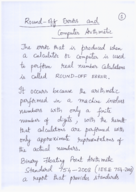 Round-Off Errors and
Computer Arithmetic
The error that is produced when
a calculator or computer is used
to perform real number calculations
is called ROUND-OFF ERROR.
It occurs because the arithmetic
performed in a machine involves
numbers with only a finite
number of digits, with the result
that calculations are performed with
only approximate representations of
the actual numbers.
Binary Floating Point Arithmetic
Standard 754-2008 (IEEE 754-2008)
a report that provides standards